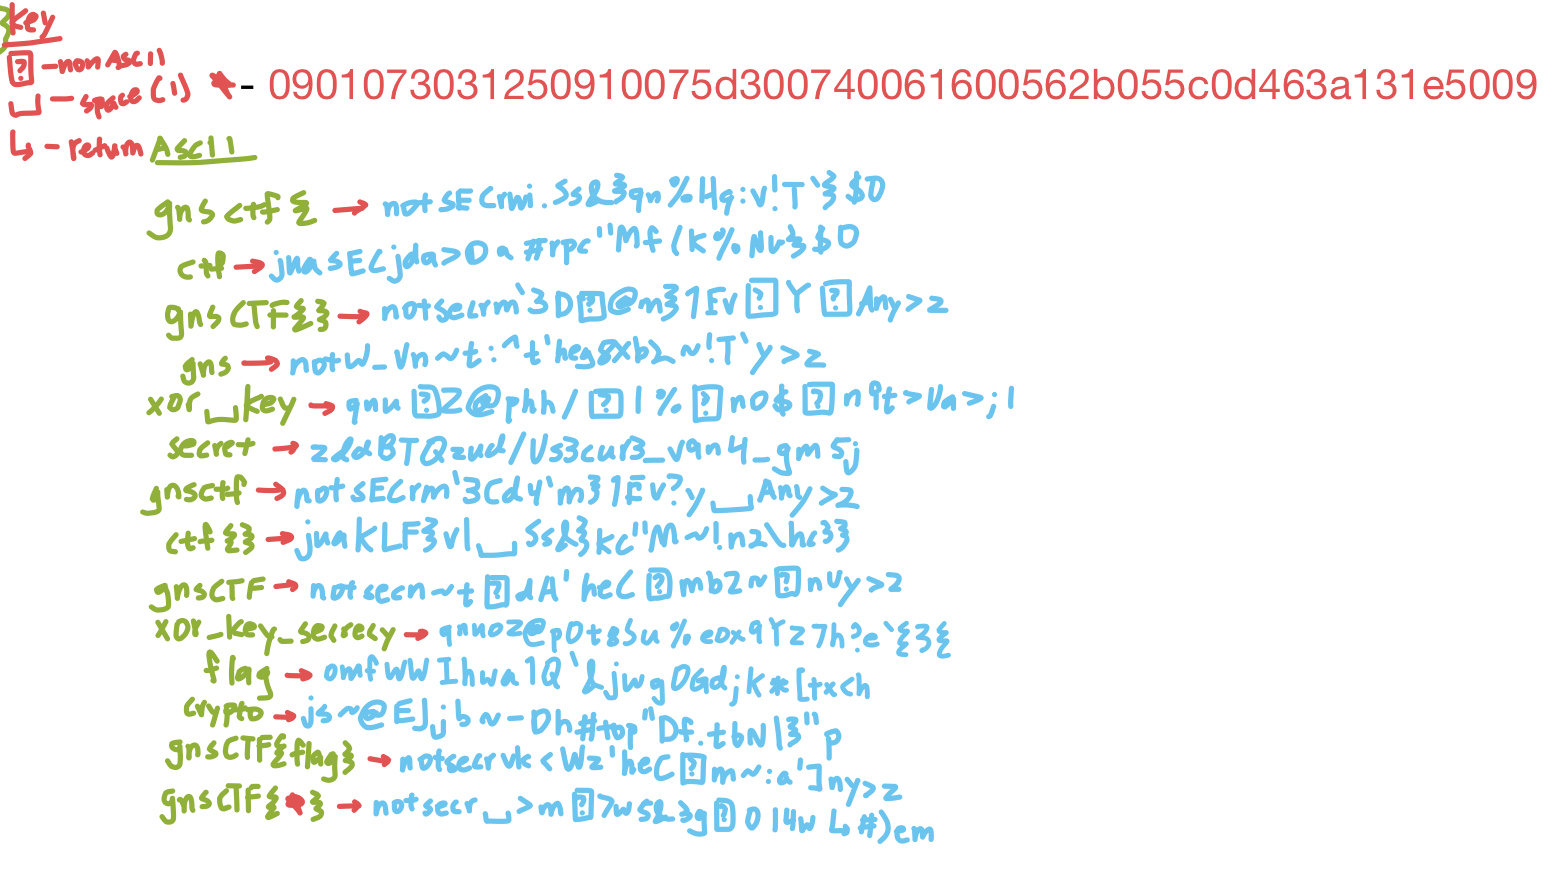 key
[?] - non Ascii
␣ - space (1)
* - 0901073031250910075d300740061600562b055c0d463a131e5009
↳ - return
Ascii
gnsctf{ → notsECrwi.Ss&}qn%Hq:v!T`}$O
ctf → juasECjda>Oa#rpc"Mf(K%Nv}$O
gnsCTF{} → notsecrm`3D[?]@m}1Ev[?]Y[?]Any>z
gns → notW_Vn~t:^t'heg8Xb2~!T`y>z
xor␣key → qnu[?]Z@phh/[?]1%[?]nO$[?]n9t>Va>;1
secret → zddBTQzud/Us3cur3_v9n4_gm5j
gnsctf → notsECrm`3Cd4`m}1Ev?y␣Any>z
ctf{} → juaKLF}v|␣Ss&}kc"M~!n2\hc3}
gnsCTF → notsecn~t[?]dA'heC[?]mb2~[?]nVy>z
xor_key_secrecy → qnuoZ@pOtsSu%eox9Yz7h?e`{3{
flag → omfWWIhwa1Q`&jwgOGd;K*[tx<h
crypto → js~@EJjb~-Oh#top"Df.tbN|}"p
gnsCTF{flag} → notsecrvk<Wz'heC[?]m~:a']ny>z
gnsCTF{*} → notsecr␣>m[?]7wS&3g[?]014w↳#)em